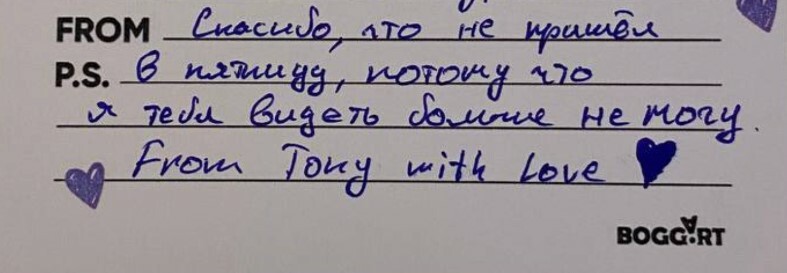 FROM Спасибо, что не пришёл
P.S. В пятницу, потому что
я тебя видеть больше не могу.
From Tony with Love
BOGGART